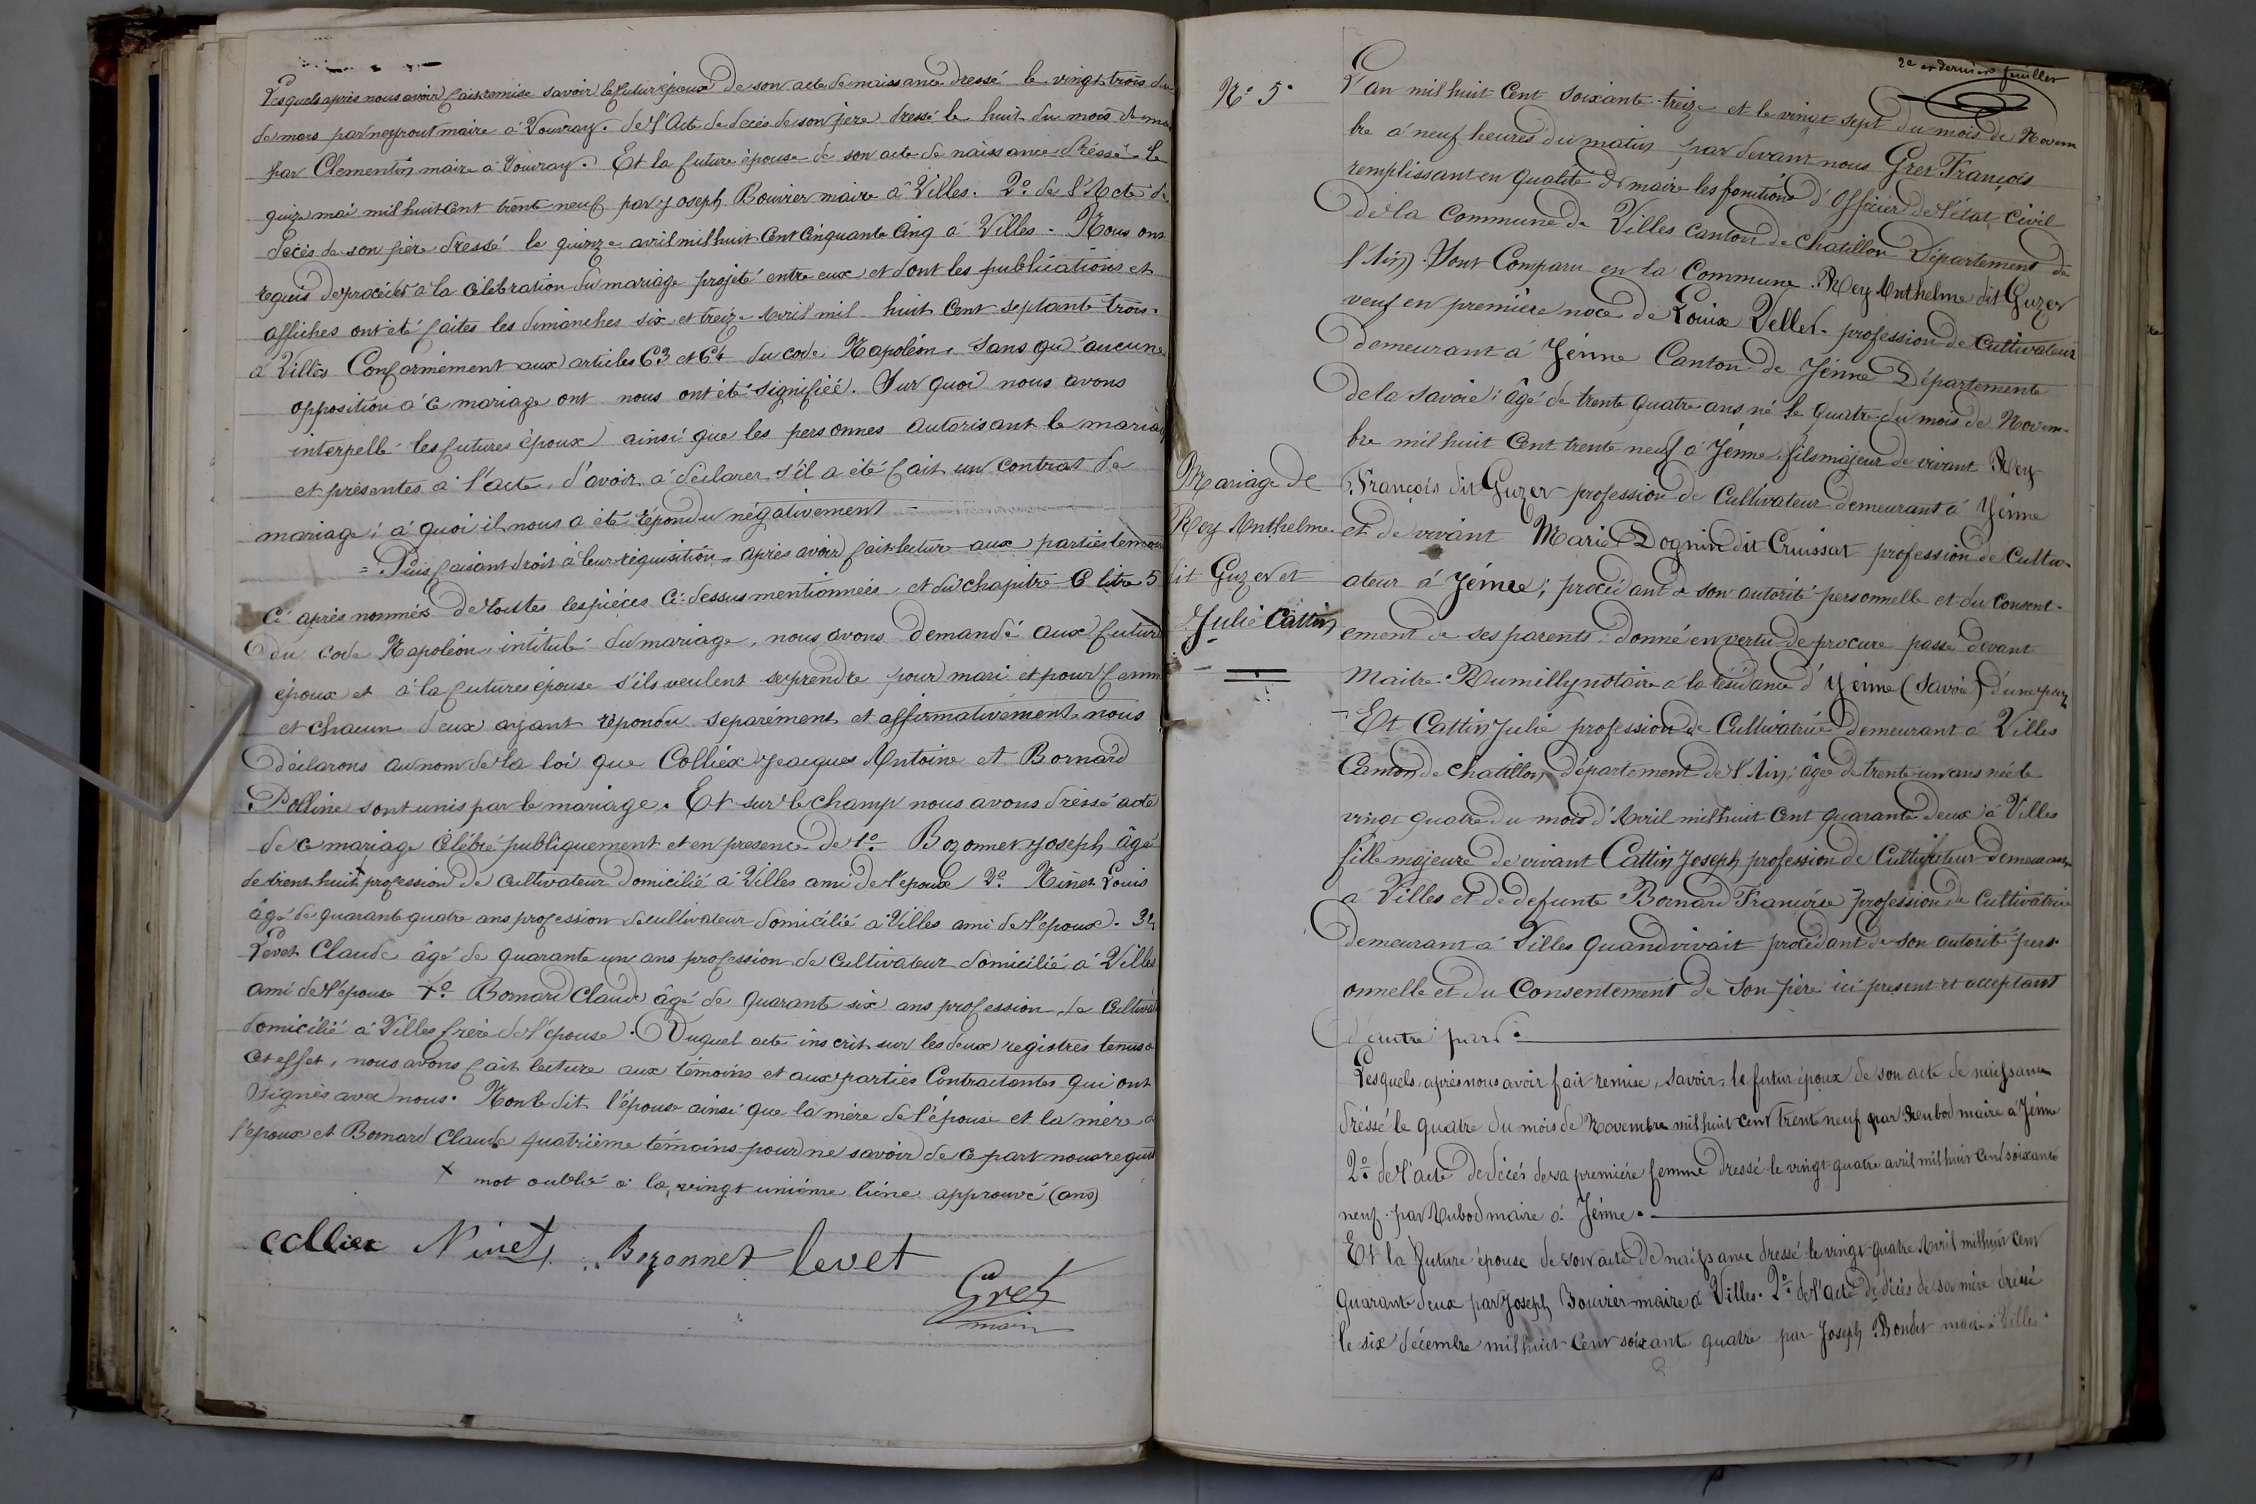 Lesquels après nous avoir fait remise savoir le futur époux de son acte de naissance dressé le vingt trois du
de mars par neyrout maire à Vouvray. de l'Acte de décès de son père dressé le huit du mois de
par Clementin maire à Vouvray. Et la future épouse de son acte de naissance dressé le
quize mai mil huit cent trente neuf par Joseph Bouvier maire à Villes. 2º de l'Acte de
decès de son père dressé le quinze avril mil huit cent cinquante cinq à Villes. Nous ont
requis de procéder à la célébration du mariage projeté entre eux et dont les publications et
affiches ont été faites les dimanches six et treize Avril mil huit cent septante trois.
à Villes Conformément aux articles 63 et 64 du code Napoléon, sans qu'aucune
opposition à ce mariage ont nous ont été signifiée. Sur quoi nous avons
interpellé les futures époux ainsi que les personnes autorisant le mariag
et présentes à l'acte, d'avoir à déclarer s'il a été fait un contrat de
mariage; à quoi il nous a été répondu négativement
= Puis faisant droit à leur réquisition, après avoir fait lecture aux parties témoins
ci après nommés de toutes les pièces ci-dessus mentionnées, et du chapitre 6 titre 5
du code Napoléon, intitulé du mariage, nous avons demandé aux futur
époux et à la futures épouse s'ils veulent se prendre pour mari et pour femme
et chacun deux ayant répondu separément et affirmativement nous
déclarons au nom de la loi que Colliex Jeacques Antoine et Bornard
Polline sont unis par le mariage. Et sur le champ nous avons dressé acte
de ce mariage célébré publiquement et en presence de 1º Bozonnet Joseph âgé
de trent huit + profession de cultivateur domicilié à Villes ami de l'époux 2º Ninet Louis
âgé de quarante quatre ans profession de cultivateur domicilié à Villes ami de l'époux. 3º
Levet Claude âgé de quarante un ans profession de cultivateur domicilié à Villes
ami de l'épouse 4º Bornard Claude âgé de quarante six ans profession de cultivat
domicilié à Villes frère de l'épouse. Duquel acte inscrit sur les deux registres tenus à
cet effet, nous avons fait lecture aux témoins et aux parties Contractantes qui ont
signés avec nous. Non le dit l'épouse ainsi que la mère de l'épouse et la mère de
l'époux et Bornard Claude quatrième témoins pour ne savoir de ce part nous requis
+ mot oublié à la vingt unième liene approuvé (ans)
Colliex Ninet Bozonnet levet
Gret
maire
2e et dernier feuillet
Nº 5.
L'an mil huit cent soixante-treize et le vingt sept du mois de Novem
bre à neuf heures du matin par devant nous Gret François
remplissant en qualité de maire les fonctions d'Officier de l'état civil
de la Commune de Villes canton de Chatillon Département de
l'Ain. Sont Comparu en la Commune. Rey Anthelme dit Guzer
veuf en première noce de Louise Vellet. profession de cultivateur
demeurant à Yénne Canton de Yénne Département
de la Savoie; âgé de trente quatre ans né le quatre du mois de Novem-
bre mil huit cent trente neuf à Yénne, fils majeur de vivant Rey
François dit Guzer profession de cultivateur demeurant à Yénne
et de vivant Marie Dognin dit Cruissat profession de Cultiv-
ateur à Yénne; procédant de son autorité personnelle et du Consent-
ement de ses parents: donné en vertu de procure passé devant
Maitre Rumilly notaire à la résidance d'Yénne (Savoie) d'une part
Et Cattin Julie profession de Cultivatrice demeurant à Villes
Canton de Chatillon, département de l'Ain; âgée de trente un ans née le
vingt quatre du mois d'Avril mil huit cent quarante deux à Villes
fille majeure de vivant Cattin Joseph profession de Cultivateur demeurant
à Villes et de defunte Bornard Francoise profession de Cultivatrice
demeurant à Villes quand vivait procédant de son autorité pers
onnelle et du Consentement de son père ici présent et acceptant
D'autre part.
Lesquels, après nous avoir fait remise, savoir, le futur époux de son acte de naissance
dréssé le quatre du mois de Novembre mil huit cent trente neuf par Reubod maire à Yénne
2º de l'acte de décès de sa première femme dressé le vingt quatre avril mil huit cent soixante
neuf par Rubod maire à Yénne.
Et la future épouse de son acte de naissance dressé le vingt-quatre Avril mil huit cent
quarante deux par Joseph Bouvier maire à Villes. 2º de l'acte de décès de sa mère dressé
le six décembre mil huit cent soixante quatre par Joseph maire à Villes.
Mariage de
Rey Anthelme
dit Guzer et
Julie Cattin